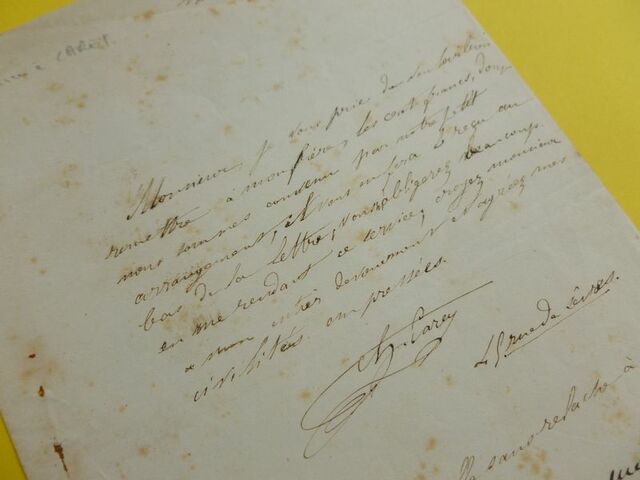 CAREY.
Monsieur, je vous prie de bien vouloir
remettre à mon frère les cent francs, dont
nous sommes convenu par notre petit
arrangement, et vous en fera le reçu au
bas de la lettre, vous m'obligerez beaucoup
en me rendant ce service, croyez monsieur
a mon entier devouement et agréez mes
civilités empressées.
Carey
45 rue de Sèvres.
sans relache à